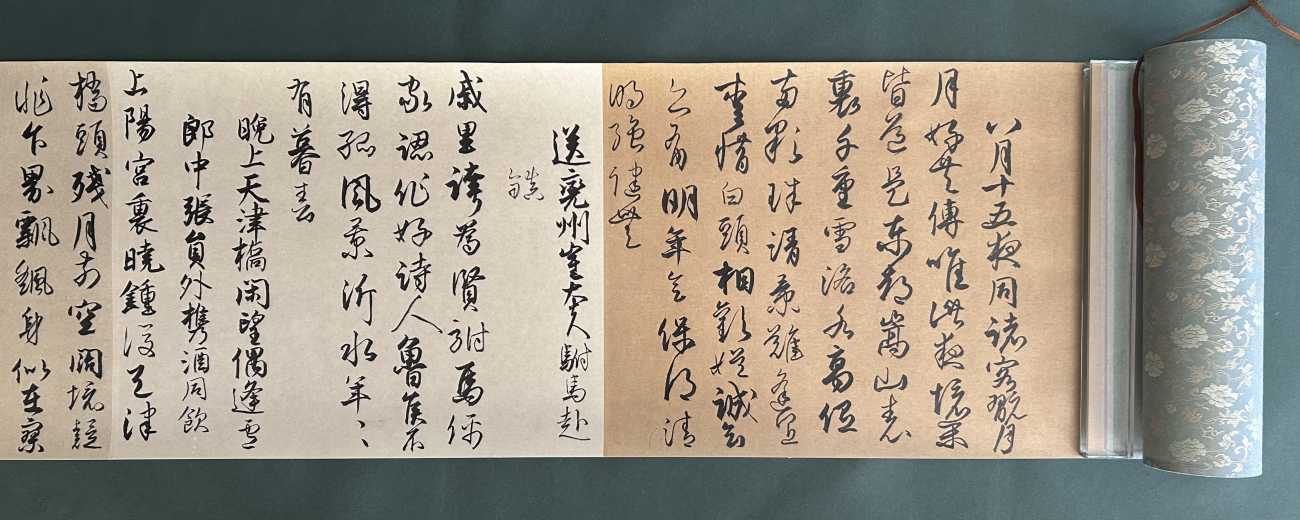 八月十五夜同諸客翫月
月好共傳唯此夜境閑
皆道是東都嵩山表
裏千重雪洛水高低
兩顆珠清景難逢宜
愛惜白頭相歡娛誠知
亦有明年會保得清
明強健無
送兗州崔大夫駙馬赴
鎮
戚里誇為賢駙馬儒
家認作好詩人魯侯不
得孤風景沂水年〻
有暮春
晚上天津橋閑望偶逢盧
郎中張員外攜酒同飲
上陽宮裏曉鍾後天津
橋頭殘月前空闊境疑
非下界飄颻身似在寥